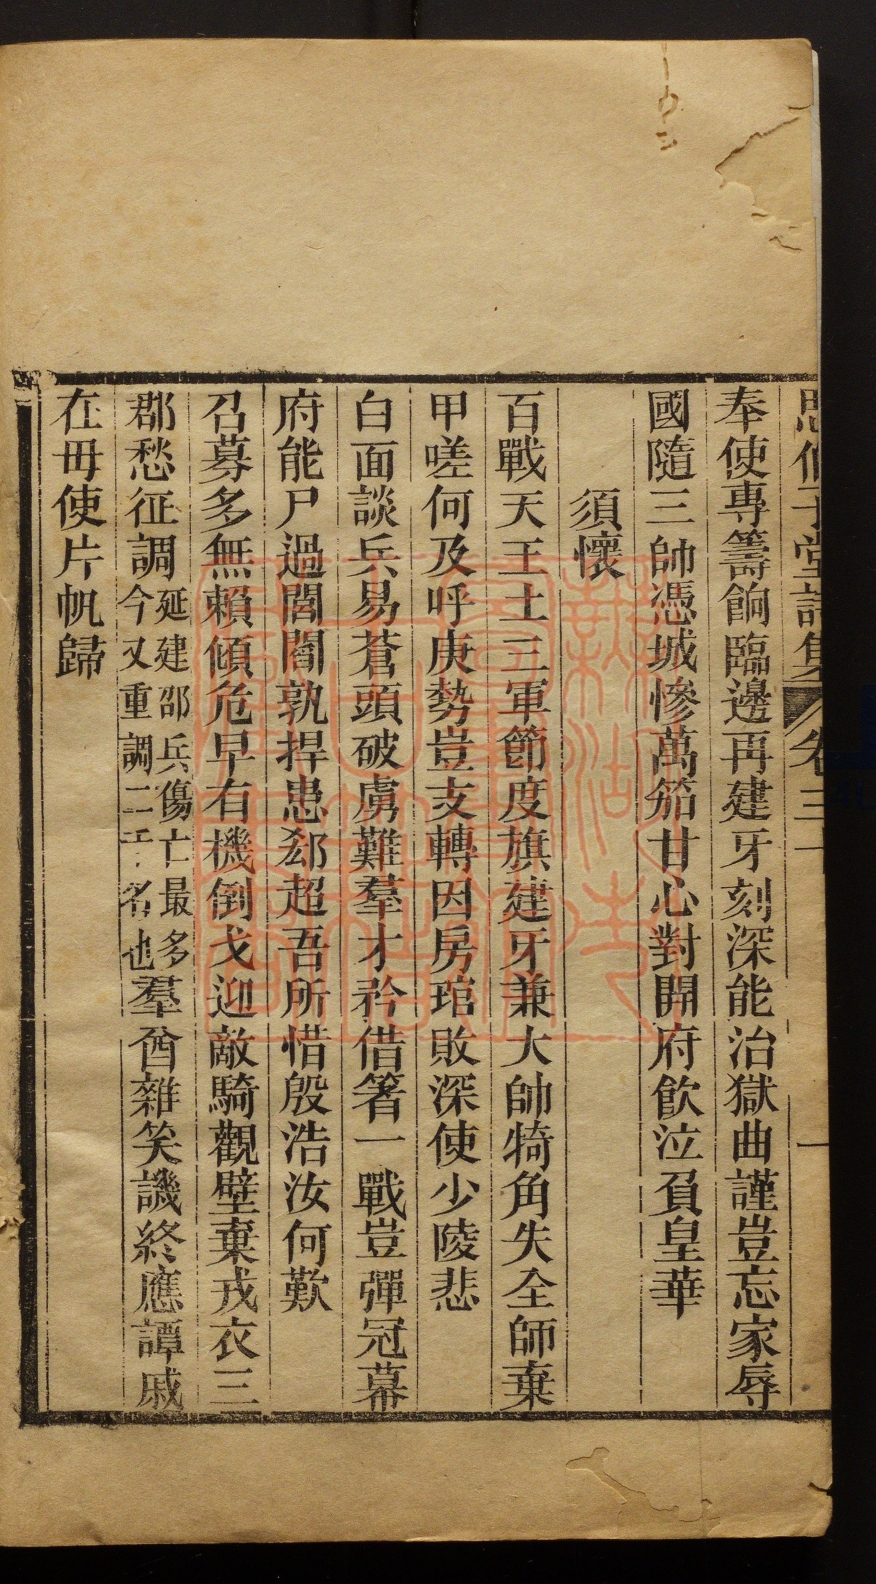 思伯子堂詩集 卷三十 一
奉使專籌餉臨邊再建牙刻深能治獄曲謹豈忘家辱
國隨三帥憑城慘萬笳甘心對開府飲泣負皇華
須懷
百戰天王土三軍節度旗建牙兼大帥犄角失全師棄
甲嗟何及呼庚勢豈支轉因房琯敗深使少陵悲
白面談兵易蒼頭破虜難羣才矜借箸一戰豈彈冠幕
府能尸過閭閻孰捍患郄超吾所惜殷浩汝何歎
召募多無賴傾危早有機倒戈迎敵騎觀壁棄戎衣三
郡愁征調延建邵兵傷亡最多今又重調二千名也羣酋雜笑譏終應譚戚
在毋使片帆歸